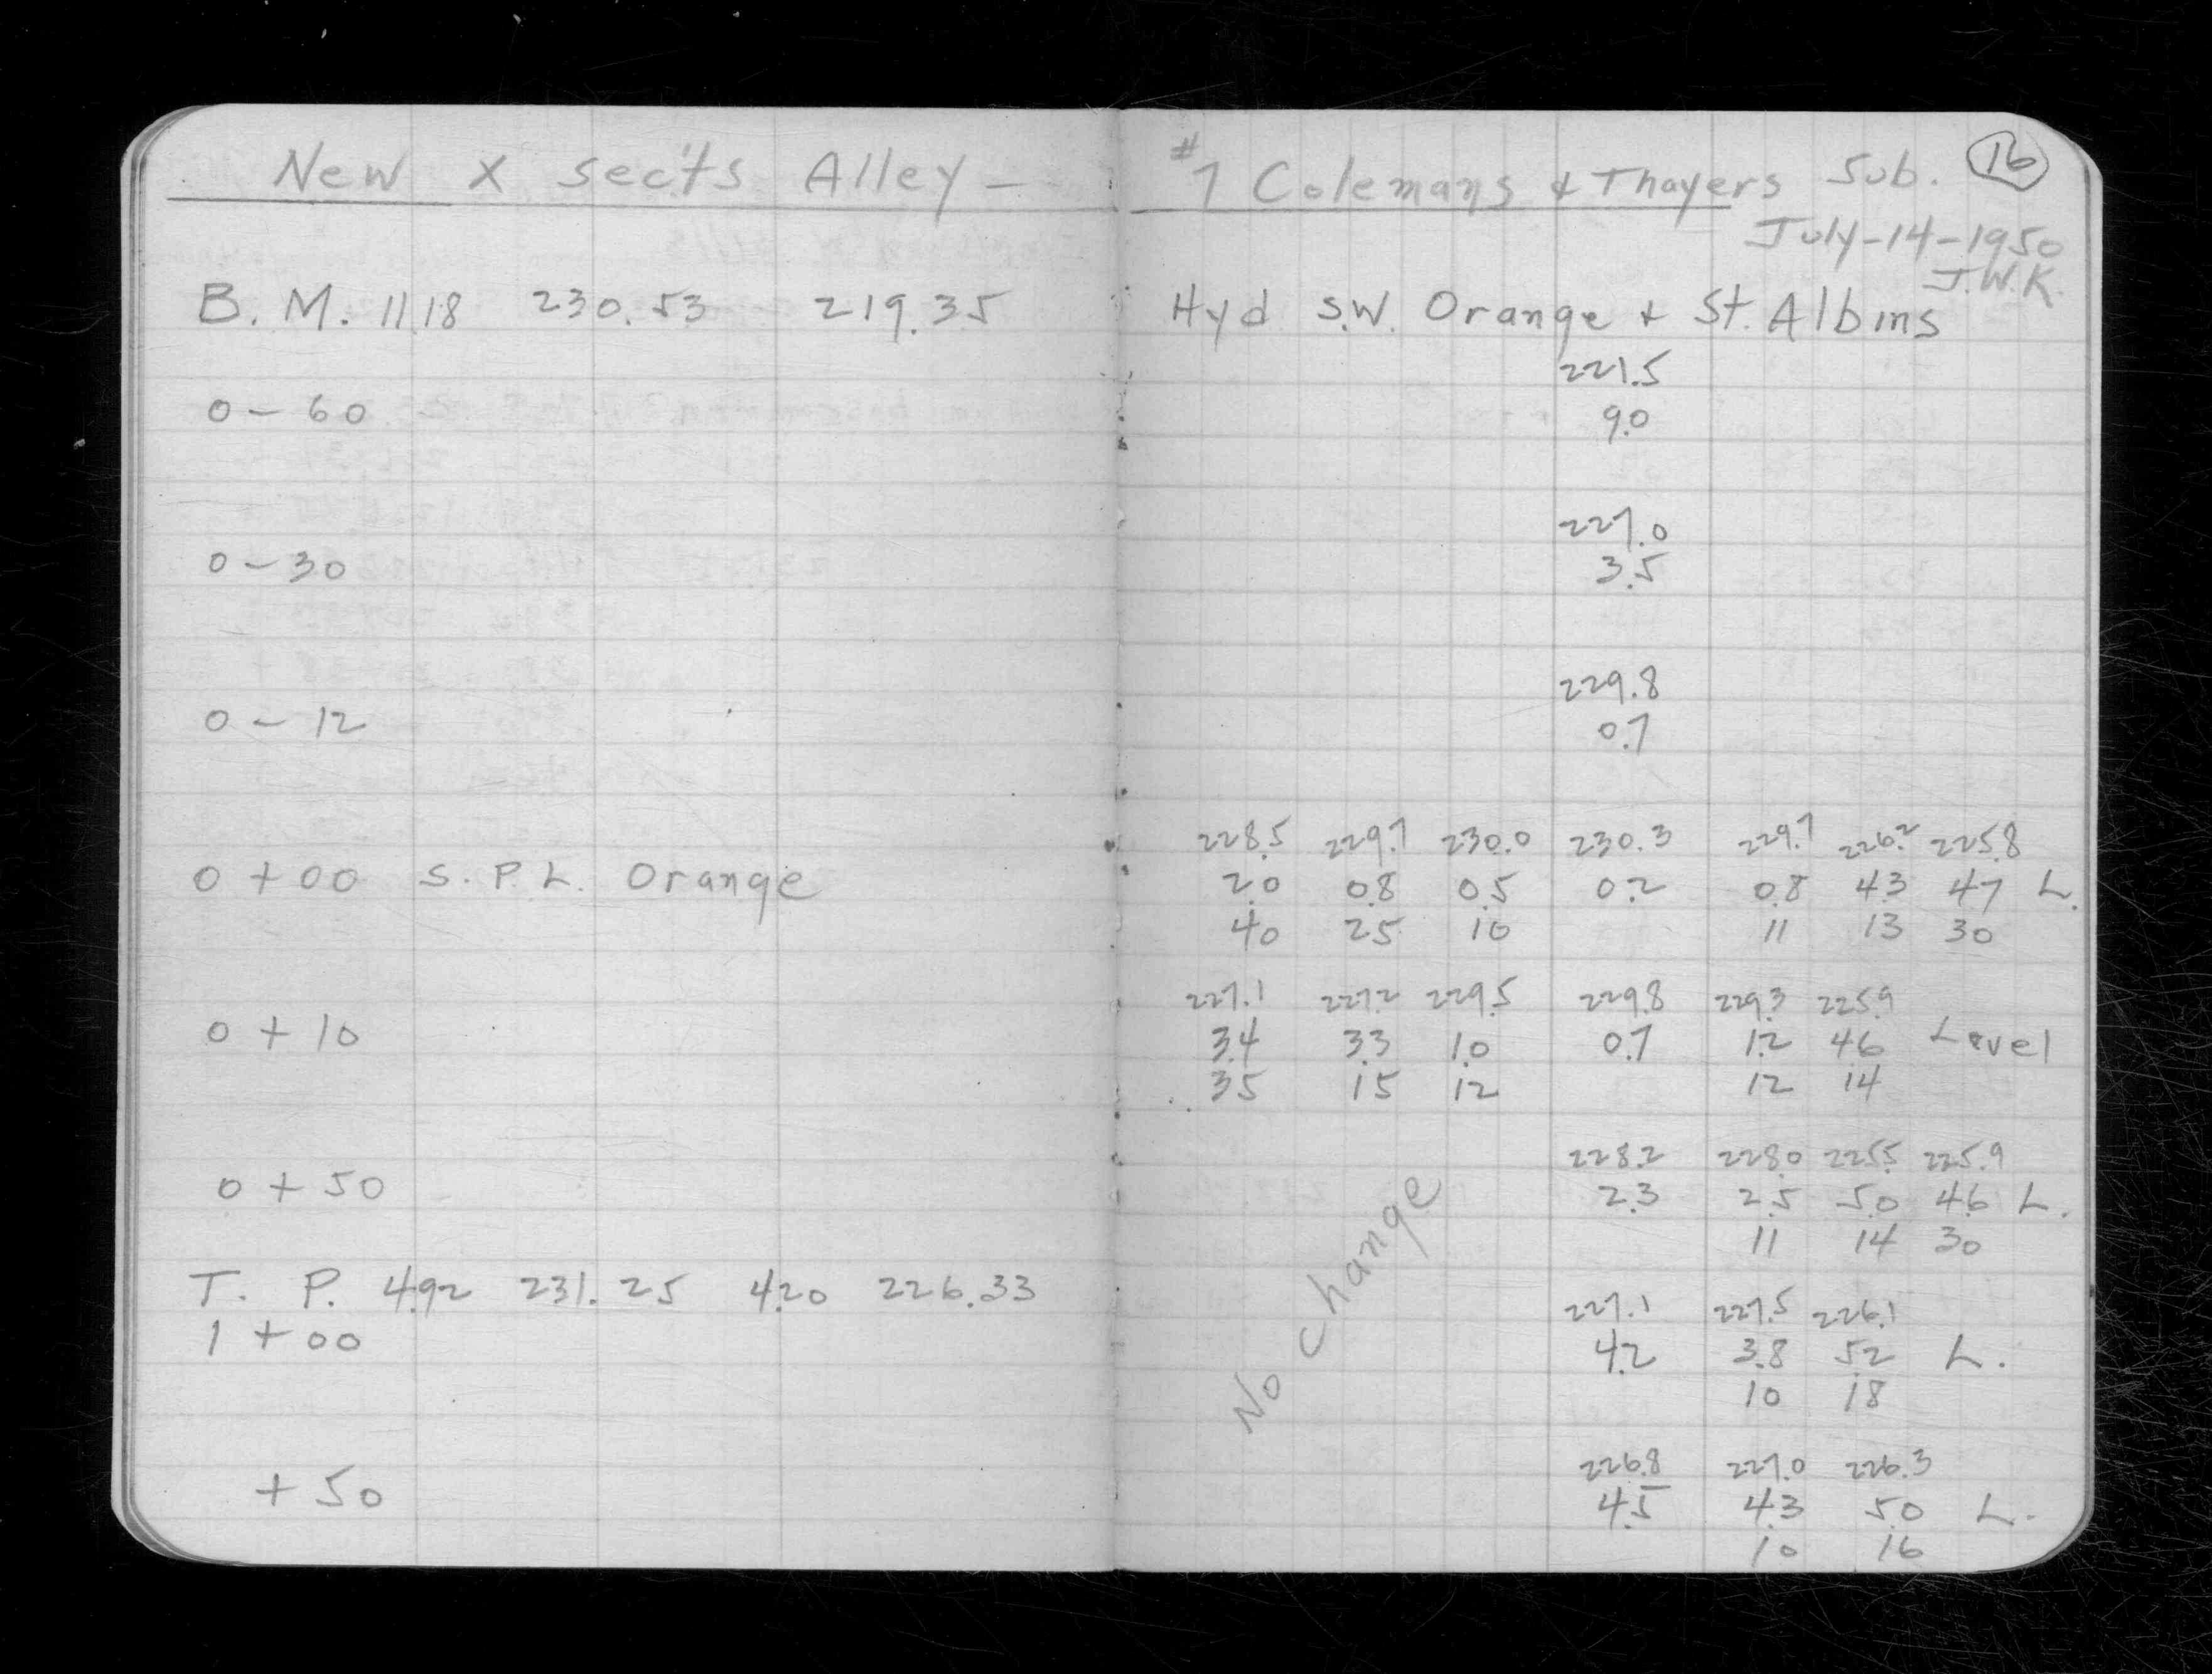 New X sect's Alley - #7 Colemans & Thayers Sub. 16
July-14-1950
J.W.K.
B. M. 11.18 230.53 219.35 Hyd S.W. Orange + St. Albins
221.5
0 - 60 9.0
227.0
0 - 30 3.5
229.8
0 - 12 0.7
228.5 229.7 230.0 230.3 229.7 226.2 225.8
0 + 00 S. P. L. Orange 2.0 0.8 0.5 0.2 0.8 4.3 4.7 L.
40 25 10 11 13 30
227.1 227.2 229.5 229.8 229.3 225.9
0 + 10 3.4 3.3 1.0 0.7 1.2 4.6 Level
35 15 12 12 14
228.2 228.0 225.5 225.9
0 + 50 2.3 2.5 5.0 4.6 L.
11 14 30
No change
T. P. 4.92 231.25 4.20 226.33
227.1 227.5 226.1
1 + 00 4.2 3.8 5.2 L.
10 18
226.8 227.0 226.3
+ 50 4.5 4.3 5.0 L.
10 16